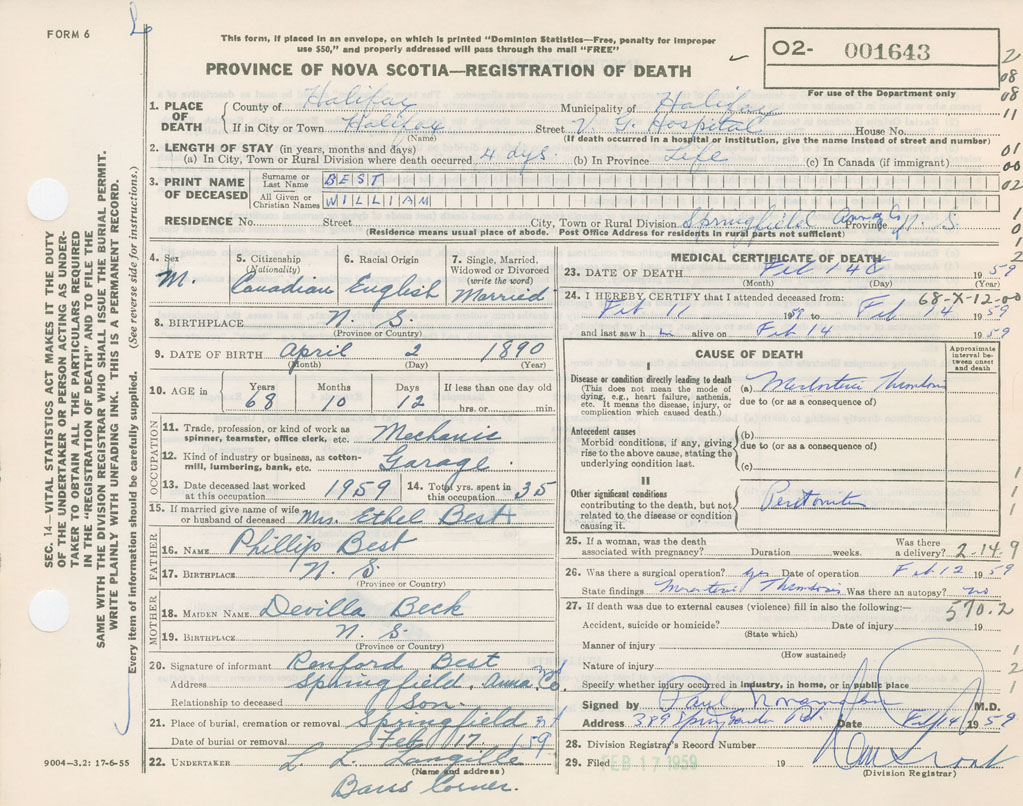 FORM 6
This form, if placed in an envelope, on which is printed "Dominion Statistics—Free, penalty for improper
use $50," and properly addressed will pass through the mail "FREE"
PROVINCE OF NOVA SCOTIA—REGISTRATION OF DEATH
02- 001643
For use of the Department only
SEC. 14—VITAL STATISTICS ACT MAKES IT THE DUTY
OF THE UNDERTAKER OR PERSON ACTING AS UNDER-
TAKER TO OBTAIN ALL THE PARTICULARS REQUIRED
IN THE "REGISTRATION OF DEATH" AND TO FILE THE
SAME WITH THE DIVISION REGISTRAR WHO SHALL ISSUE THE BURIAL PERMIT.
WRITE PLAINLY WITH UNFADING INK. THIS IS A PERMANENT RECORD.
Every item of information should be carefully supplied. (See reverse side for instructions.)
1. PLACE OF DEATH
County of Halifax Municipality of Halifax
If in City or Town Halifax Street V. G. Hospital House No.
(Name) (If death occurred in a hospital or institution, give the name instead of street and number)
2. LENGTH OF STAY (in years, months and days)
(a) In City, Town or Rural Division where death occurred 4 dys. (b) In Province Life (c) In Canada (if immigrant)
3. PRINT NAME OF DECEASED
Surname or Last Name BEST
All Given or Christian Names WILLIAM
RESIDENCE No. Street City, Town or Rural Division Springfield Anna Co Province N. S.
(Residence means usual place of abode. Post Office Address for residents in rural parts not sufficient)
4. Sex M.
5. Citizenship (Nationality) Canadian
6. Racial Origin English
7. Single, Married, Widowed or Divorced (write the word) Married
8. BIRTHPLACE N. S.
(Province or Country)
9. DATE OF BIRTH April 2 1890
(Month) (Day) (Year)
10. AGE in Years 68 Months 10 Days 12 If less than one day old hrs. or min.
OCCUPATION
11. Trade, profession, or kind of work as spinner, teamster, office clerk, etc. Mechanic
12. Kind of industry or business, as cotton-mill, lumbering, bank, etc. Garage
13. Date deceased last worked at this occupation 1959 14. Total yrs. spent in this occupation 35
15. If married give name of wife or husband of deceased Mrs. Ethel Best
FATHER
16. NAME Phillip Best
17. BIRTHPLACE N. S.
(Province or Country)
MOTHER
18. MAIDEN NAME Devilla Beck
19. BIRTHPLACE N. S.
(Province or Country)
20. Signature of informant Renford Best
Address Springfield, Anna. Co. NS
Relationship to deceased son.
21. Place of burial, cremation or removal Springfield
Date of burial or removal Feb 17 1959
22. UNDERTAKER L. L. Langille
(Name and address)
Barss Corner.
9004-3.2: 17-6-55
MEDICAL CERTIFICATE OF DEATH
23. DATE OF DEATH Feb 14 1959
(Month) (Day) (Year)
68-X-12-00
24. I HEREBY CERTIFY that I attended deceased from:
Feb 11 1959 Feb 14 1959
and last saw h im alive on Feb 14 1959
CAUSE OF DEATH
Approximate interval between onset and death
I
Disease or condition directly leading to death
(This does not mean the mode of dying, e.g., heart failure, asthenia, etc. It means the disease, injury, or complication which caused death.)
(a) Mesenteric Thrombosis
due to (or as a consequence of)
Antecedent causes
Morbid conditions, if any, giving rise to the above cause, stating the underlying condition last.
(b)
due to (or as a consequence of)
(c)
II
Other significant conditions
contributing to the death, but not related to the disease or condition causing it.
Peritonitis
25. If a woman, was the death associated with pregnancy? Duration weeks. Was there a delivery? 2-14-9
26. Was there a surgical operation? yes Date of operation Feb 12 1959
State findings Mesenteric Thrombosis Was there an autopsy? no
27. If death was due to external causes (violence) fill in also the following:— 570.2
Accident, suicide or homicide? Date of injury 19
(State which)
Manner of injury
(How sustained)
Nature of injury
Specify whether injury occurred in industry, in home, or in public place
Signed by Paul M.D.
Address 389 Spring Garden Rd. Date Feb 14 1959
28. Division Registrar's Record Number
29. Filed FEB 17 1959 19
(Division Registrar)
2
08
08
11
01
00
02
1
0
1
2
1
1
1
1
2
1